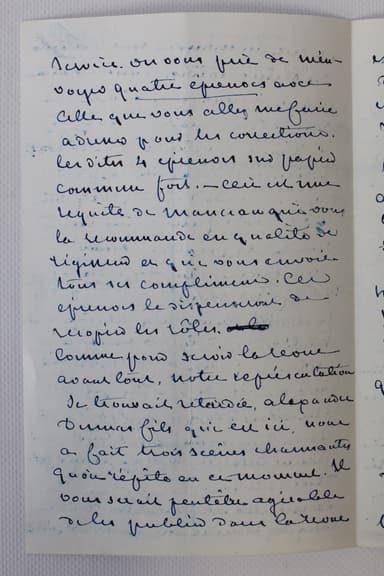 service. on vous prie de m'en-
voyer quatre épreuves avec
celles que vous allez me faire
adresser pour les corrections.
les dites 4 épreuves sur papier
commun fort. – ceci est une
requête de Manceau qui vous
la recommande en qualité de
régisseur et qui vous envoie
tous ses compliments. Ces
épreuves le dispenseront de
recopier les rôles.
comme pour servir la révue
avant tout, notre représentation
se trouvait retardée, alexandre
Dumas fils qui est ici, nous
a fait trois scènes charmantes
qu'on répète en ce moment. Il
vous serait peutêtre agréable
de les publier dans la revue